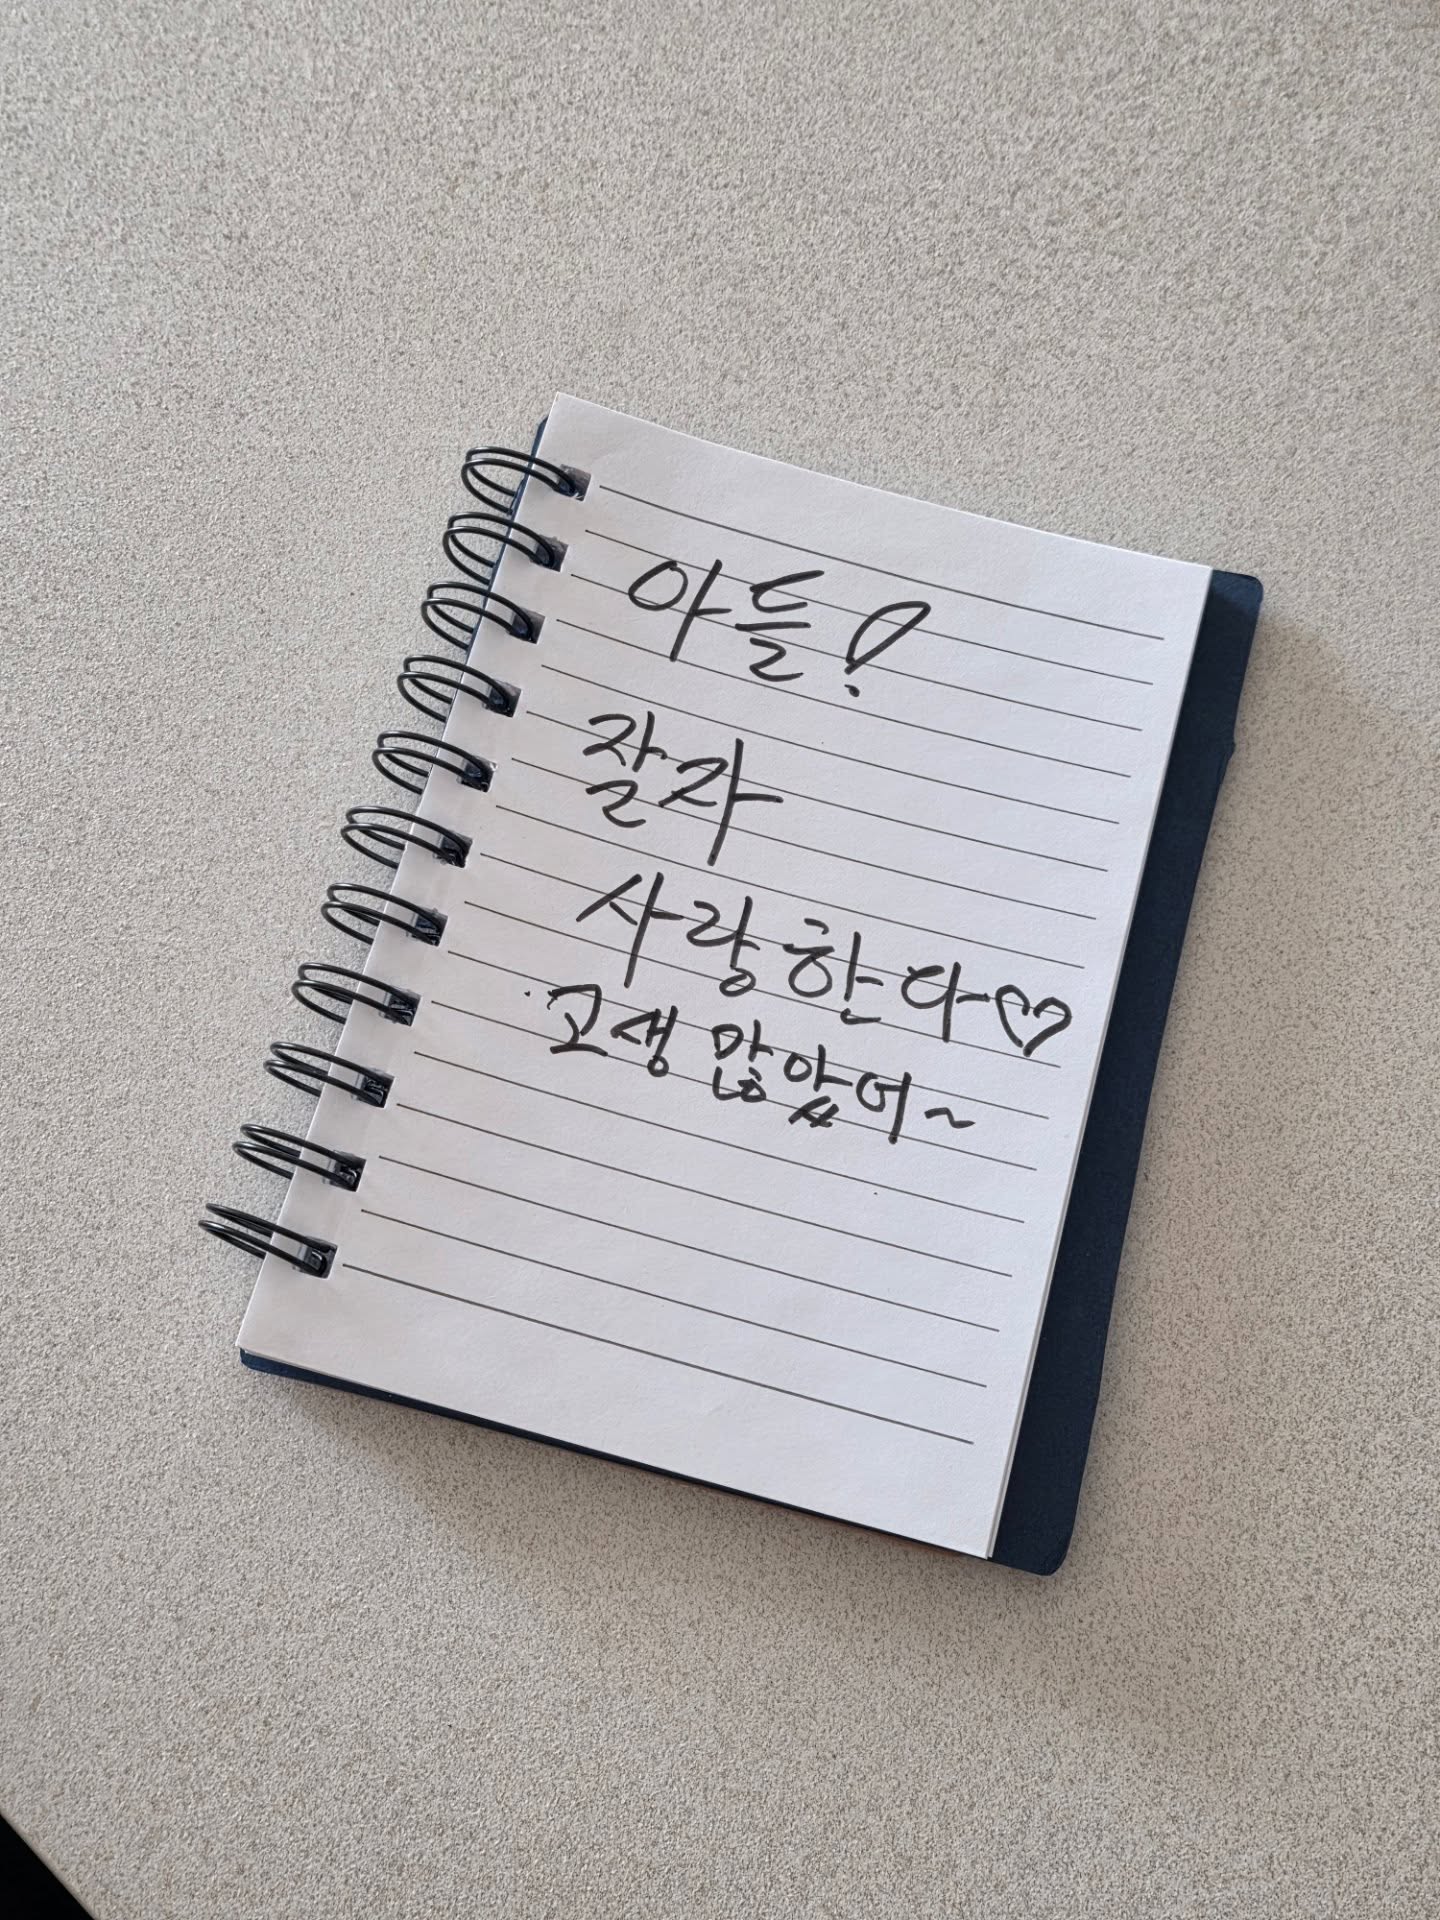 아들!
잘자
사랑한다♡
고생 많았어~